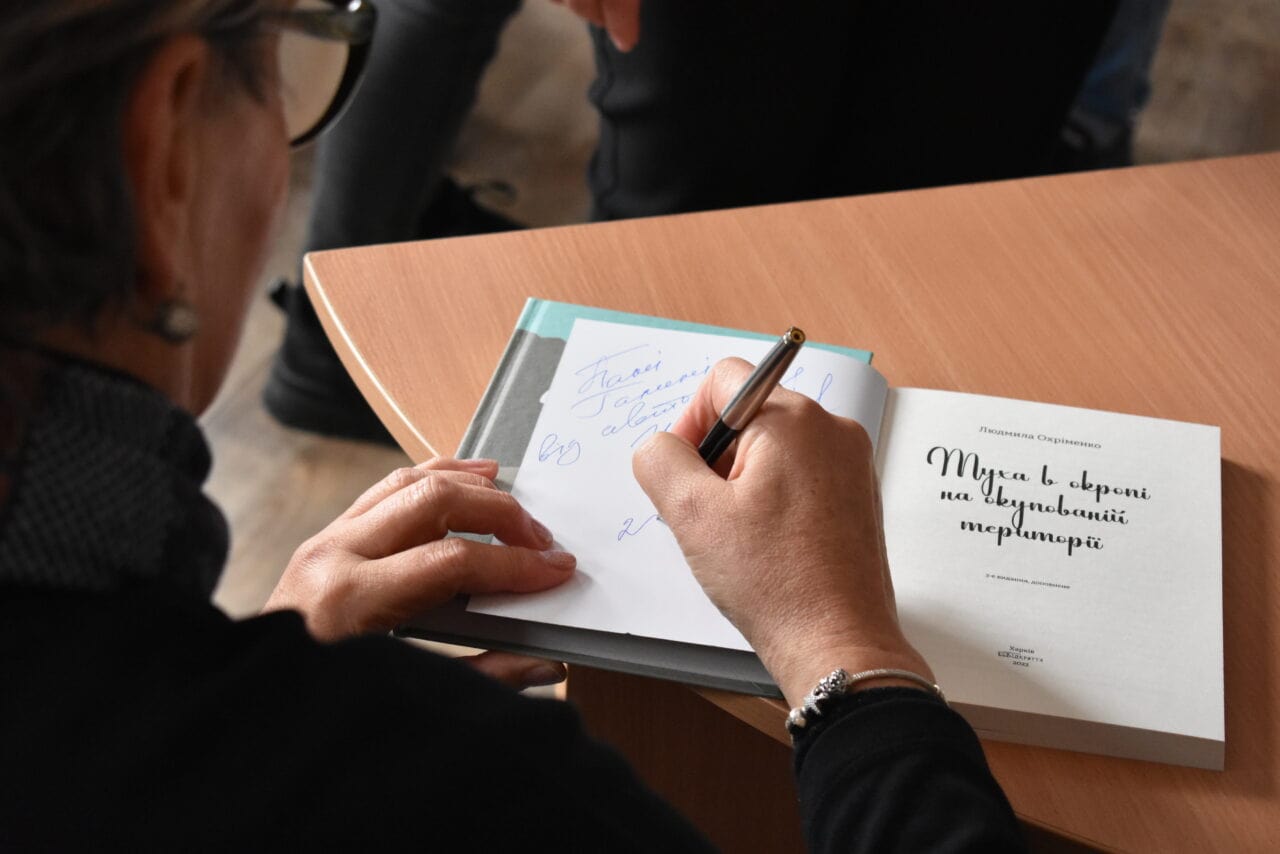 Пані
Галині
від авто
2
Людмила Охріменко
Муха в окропі
на окупованій
території
2-е видання, доповнене
Харків
2022